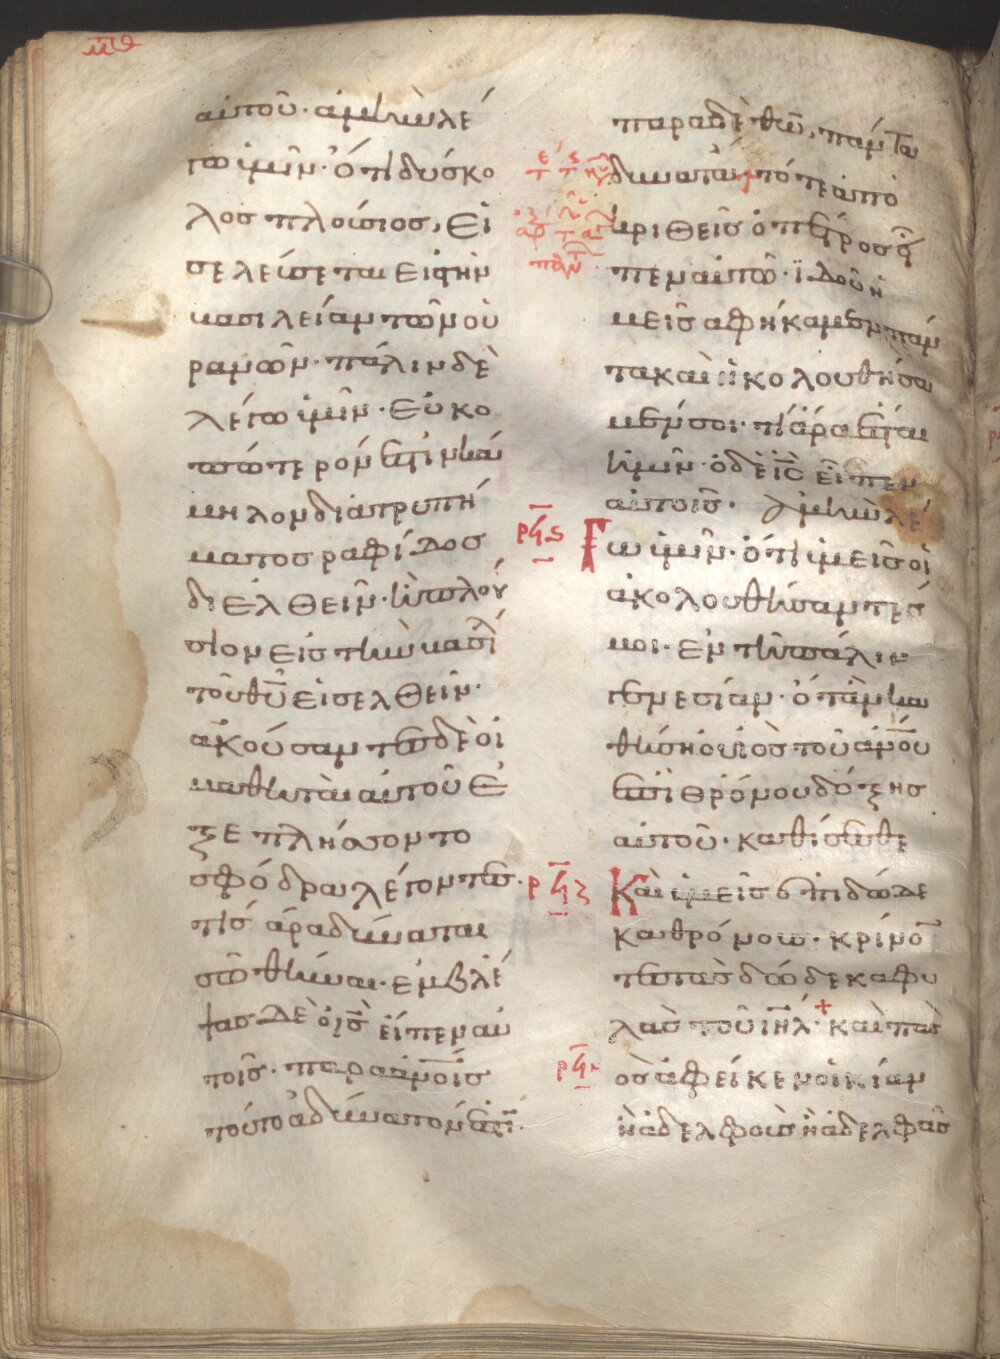 μθ
αυτοῦ· ἀμὴν λέ
γω ὑμῖν· ὅτι δύσκο
λος πλούσιος, εἰ
σελεύσεται εἰς τὴν
βασιλείαν τῶν οὐ
ρανῶν· πάλιν δὲ
λέγω ὑμῖν· εὐκο
πώτερόν ἐστιν κά
μηλον διὰ τρυπή
ματος ραφίδος
διελθεῖν· ἢ πλού
σιον εἰς τὴν βασι
τοῦ θῦ εἰσελθεῖν·
ἀκούσαντες δὲ οἱ
μαθηταὶ αὐτοῦ ἐ
ξεπλήσσοντο
σφόδρα λέγοντες·
τίς ἄρα δύναται
σωθῆναι· ἐμβλέ
ψας δὲ ὁ ις εἶπεν αὐ
τοῖς· παρὰ ἀνοις
τοῦτο ἀδύνατόν ἐστι·
παρὰ δὲ θῶ, πάντα
δυνατά· τότε ἀπο
κριθεὶς ὁ πέτρος εἶ
πεν αὐτῶ· ἰδοὺ ἡ
μεῖς ἀφήκαμεν πάν
τα καὶ ἠκολουθήσα
μέν σοι· τί ἄρα ἔσται
ἡμῖν· ὁ δὲ ις εἶπεν
αὐτοῖς· ἀμὴν λέ
ρϟς
Γω ὑμῖν· ὅτι ὑμεῖς οἱ
ἀκολουθήσαντές
μοι· ἐν τῆ πάλιν
γενεσίαν· ὅταν κα
θήση ὁ υἱὸς τοῦ ἀνου
ἐπὶ θρόνου δόξης
αὐτοῦ· καθίσεσθε
ρϟζ
Καὶ ὑμεῖς ἐπὶ δώδε
κα θρόνους· κρίνον
τες τὰς δώδεκα φυ
λὰς τοῦ ιηλ· καὶ πᾶς
ρϟη
ὃς ἀφεῖκεν οἰκίαν
ἢ ἀδελφοὺς ἢ ἀδελφὰς